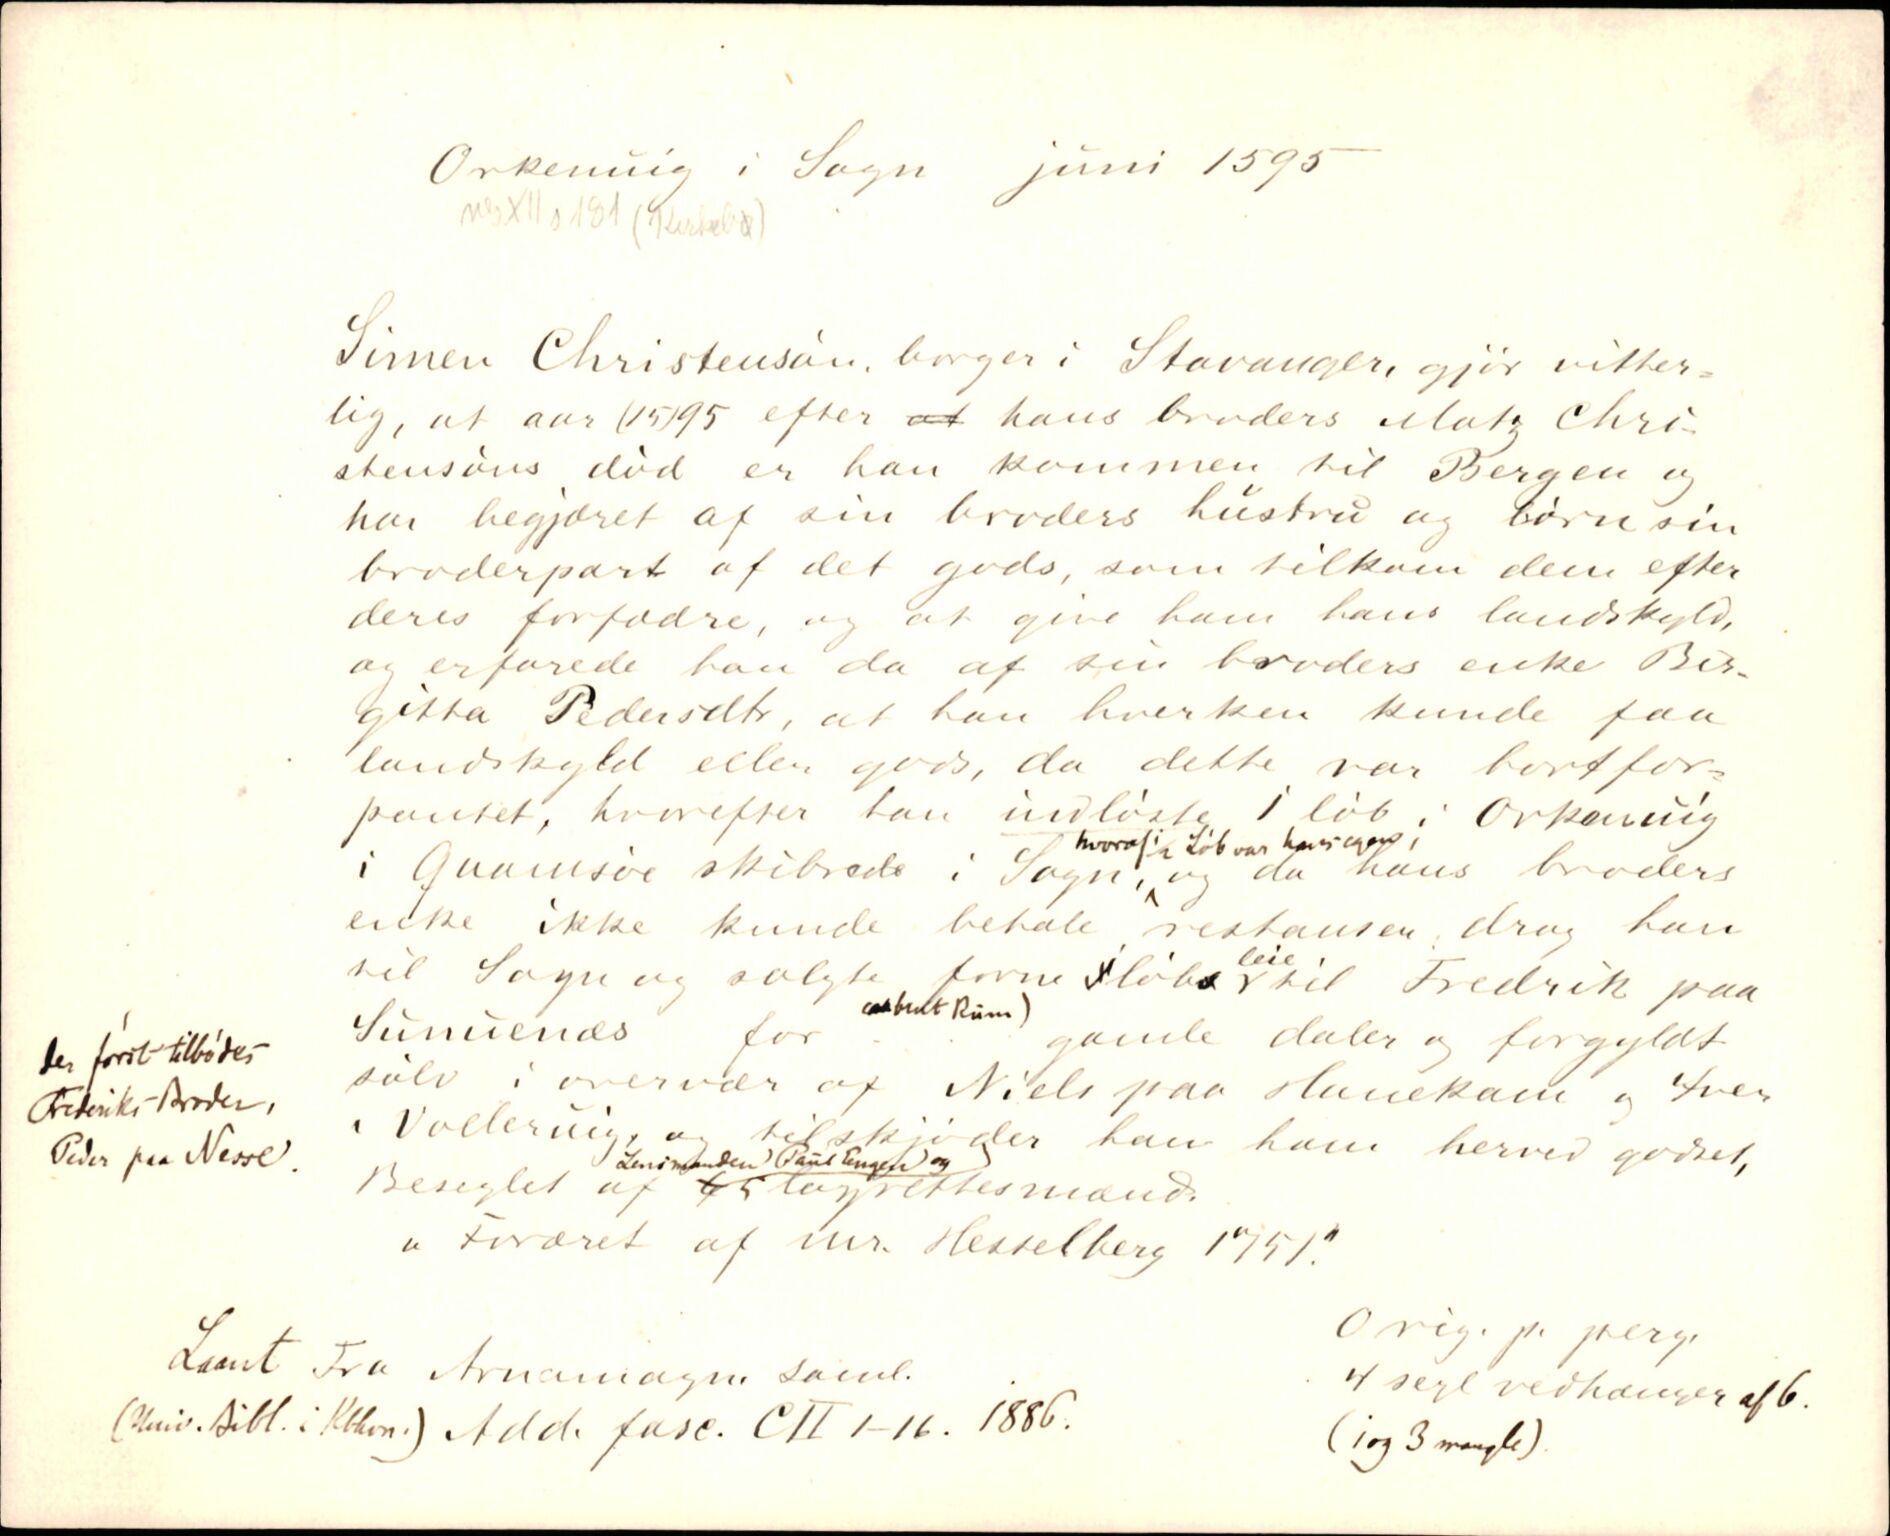 Orkenuig i Sogn juni 1595
NG XII s 181 (Kirkebø)
Simen Christensön, borger i Stavanger, gjör vitter-
lig, at aar (15)95 efter at hans broders Matz Chri-
stensöns död er han kommen til Bergen og
har begjæret af sin broders hustru og börn sin
broderpart af det gods, som tilkom dem efter
deres forfædre, og at give ham hans landskyld,
og erfarede han da af sin broders enke Bir-
gitta Pedersdtr, at han hverken kunde faa
landskyld eller gods, da dette var bortfor-
pantet, hvorefter han indlöste 1 löb i Orkenuig
hvoraf ½ Löb var hans egen,
i Quamsöe skibrede i Sogn, og da hans broders
enke ikke kunde betale restansen, drog han
leie
til Sogn og solgte forne 1 löbs til Fredrik paa
(aabent Rum)
Sunuenæs for gamle daler og forgyldt
sölv i overvær af Niels paa Hanekam og Iver
i Vollervig, og tilskjöder han ham herved godset,
Lensmanden (Paul Engen) og
Beseglet af 6 5 lagrettesmænd.
"Foræret af mr. Hesselberg 1751."
der först tilbödes
Frederiks Broder,
Peder paa Nesse.
Laant Fra Arnamagn. saml.
(Univ. Bibl. i Kbhvn.) Add. fasc. CII 1-16. 1886.
Orig. p. perg.
4 segl vedhænger af 6.
(1 og 3 mangle).